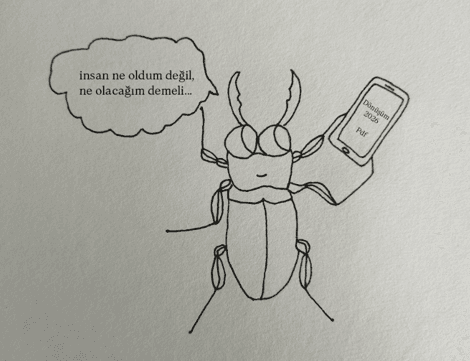 insan ne oldum değil,
ne olacağım demeli...
Dönüşüm
2026
Pdf